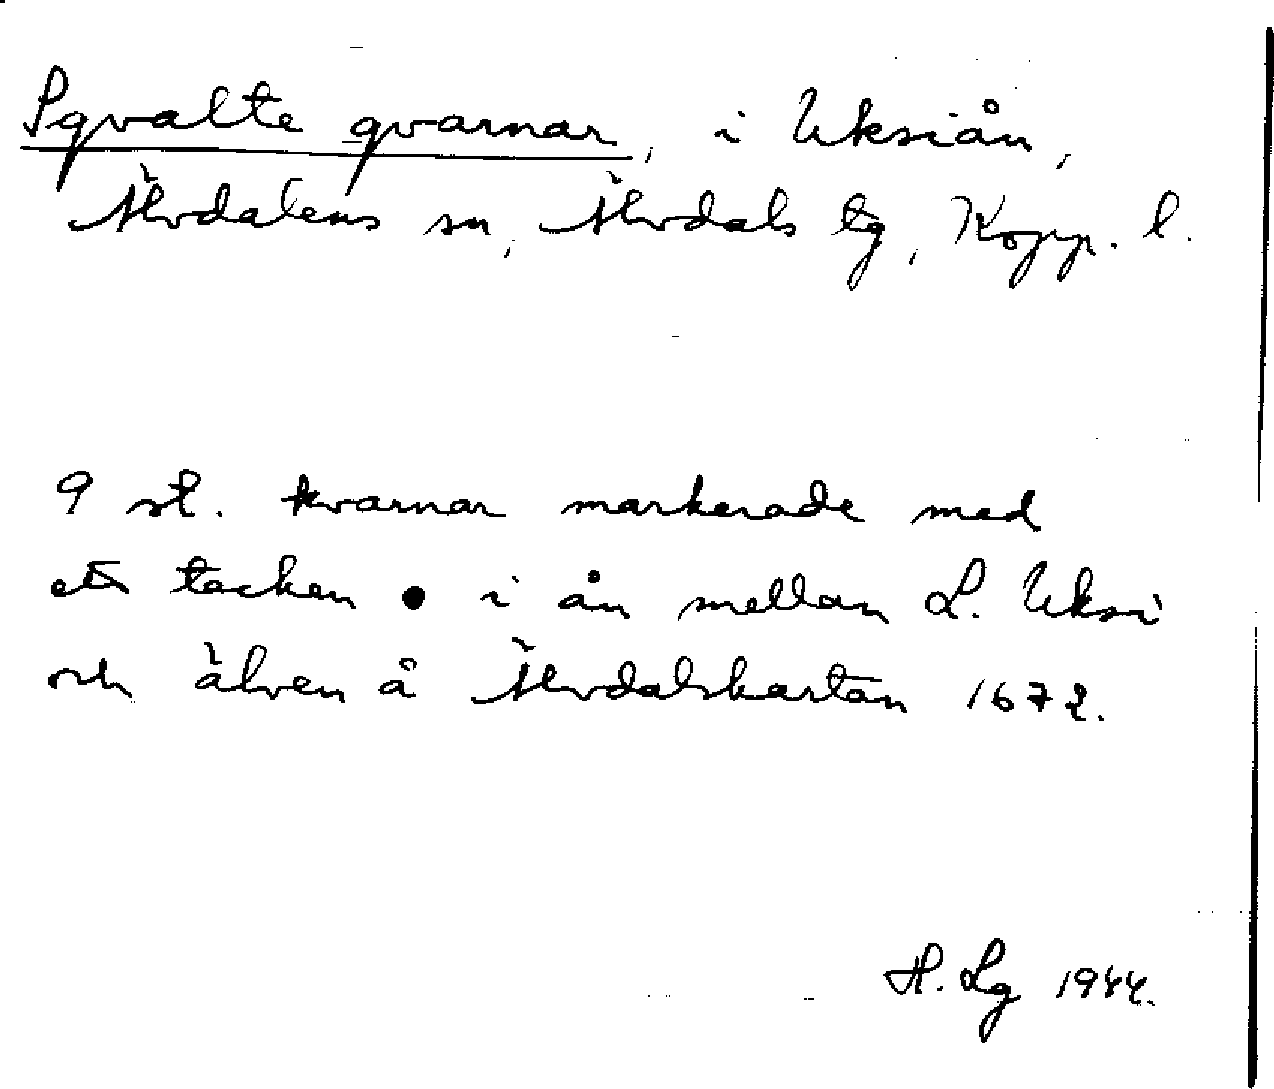 Sqvalte qvarnar, i Uksiån,
Älvdalens sn, Älvdals tg, Kopp. l.
9 st. kvarnar markerade med
ett tecken ● i ån mellan L. Uksi
och älven å Älvdalskartan 1672.
H. Lg 1944.